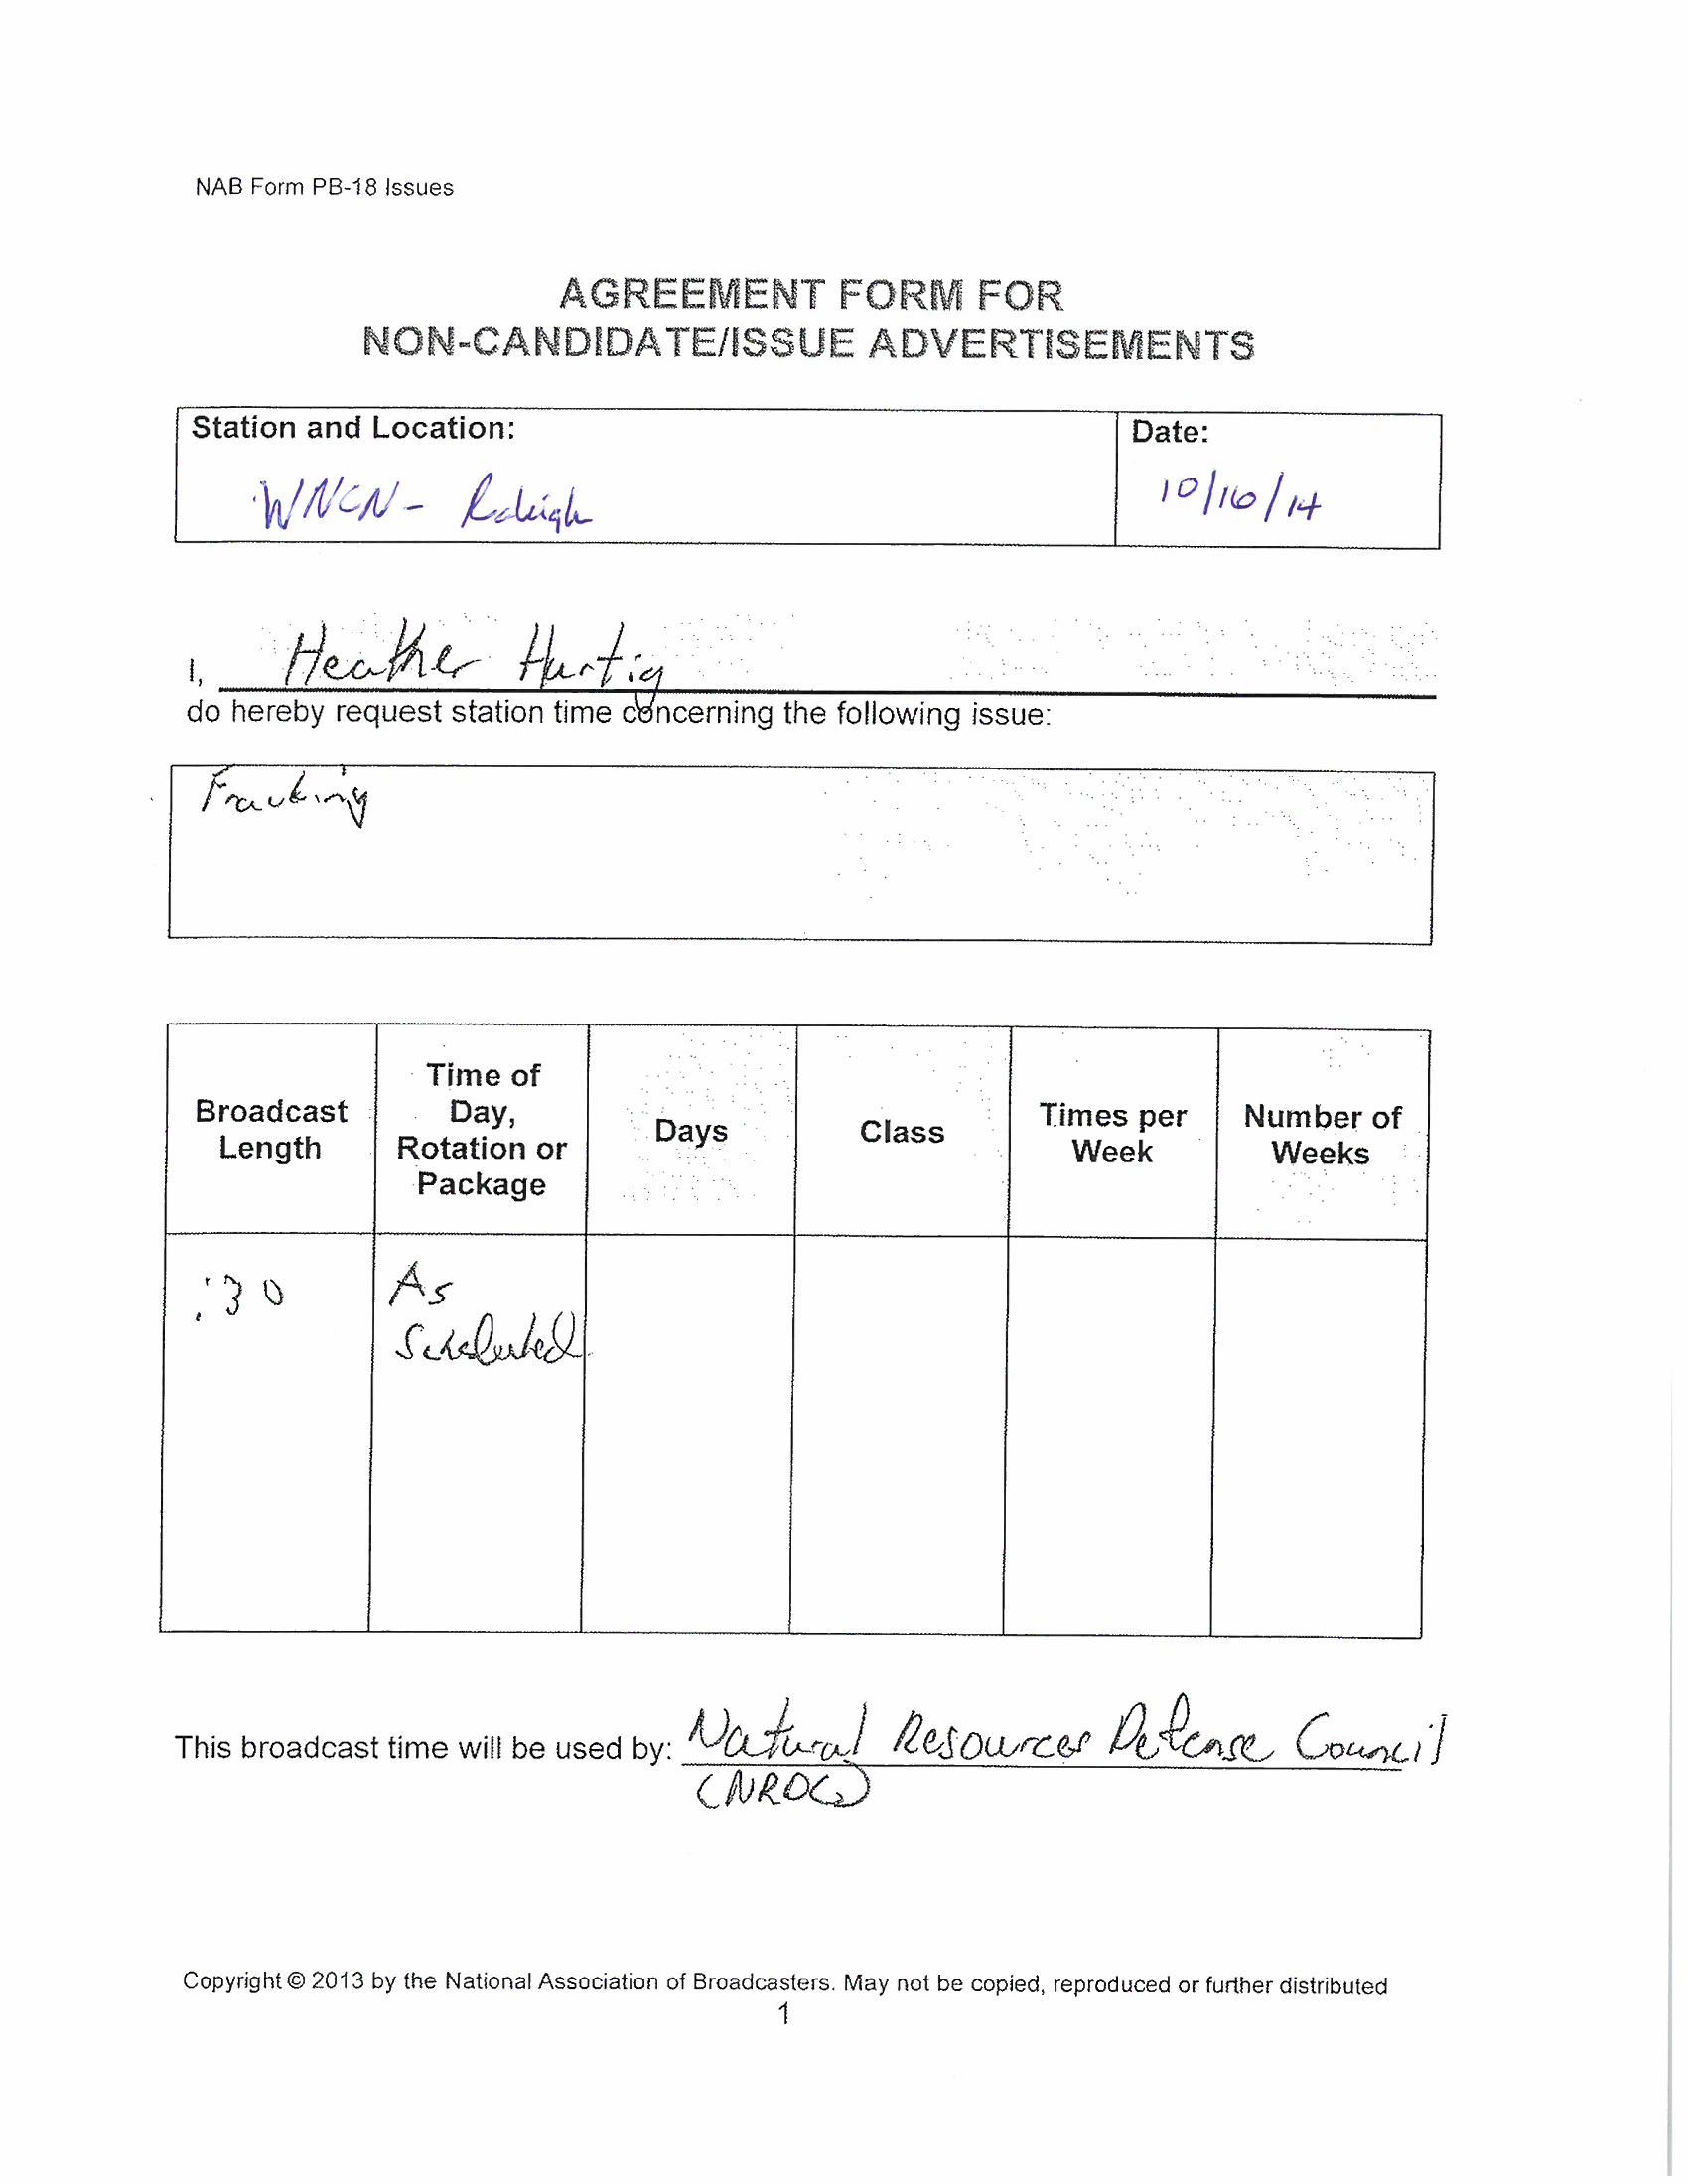 NAB Form PB-18 Issues
AGREEMENT FORM FOR
NON-CANDIDATE/ISSUE ADVERTISEMENTS
Station and Location:
WNCN - Raleigh
Date:
10/16/14
I, Heather Hurtig
do hereby request station time concerning the following issue:
Fracking
Broadcast
Length
Time of
Day,
Rotation or
Package
Days
Class
Times per
Week
Number of
Weeks
:30
As
Scheduled
This broadcast time will be used by: Natural Resources Defense Council
(NRDC)
Copyright © 2013 by the National Association of Broadcasters. May not be copied, reproduced or further distributed
1